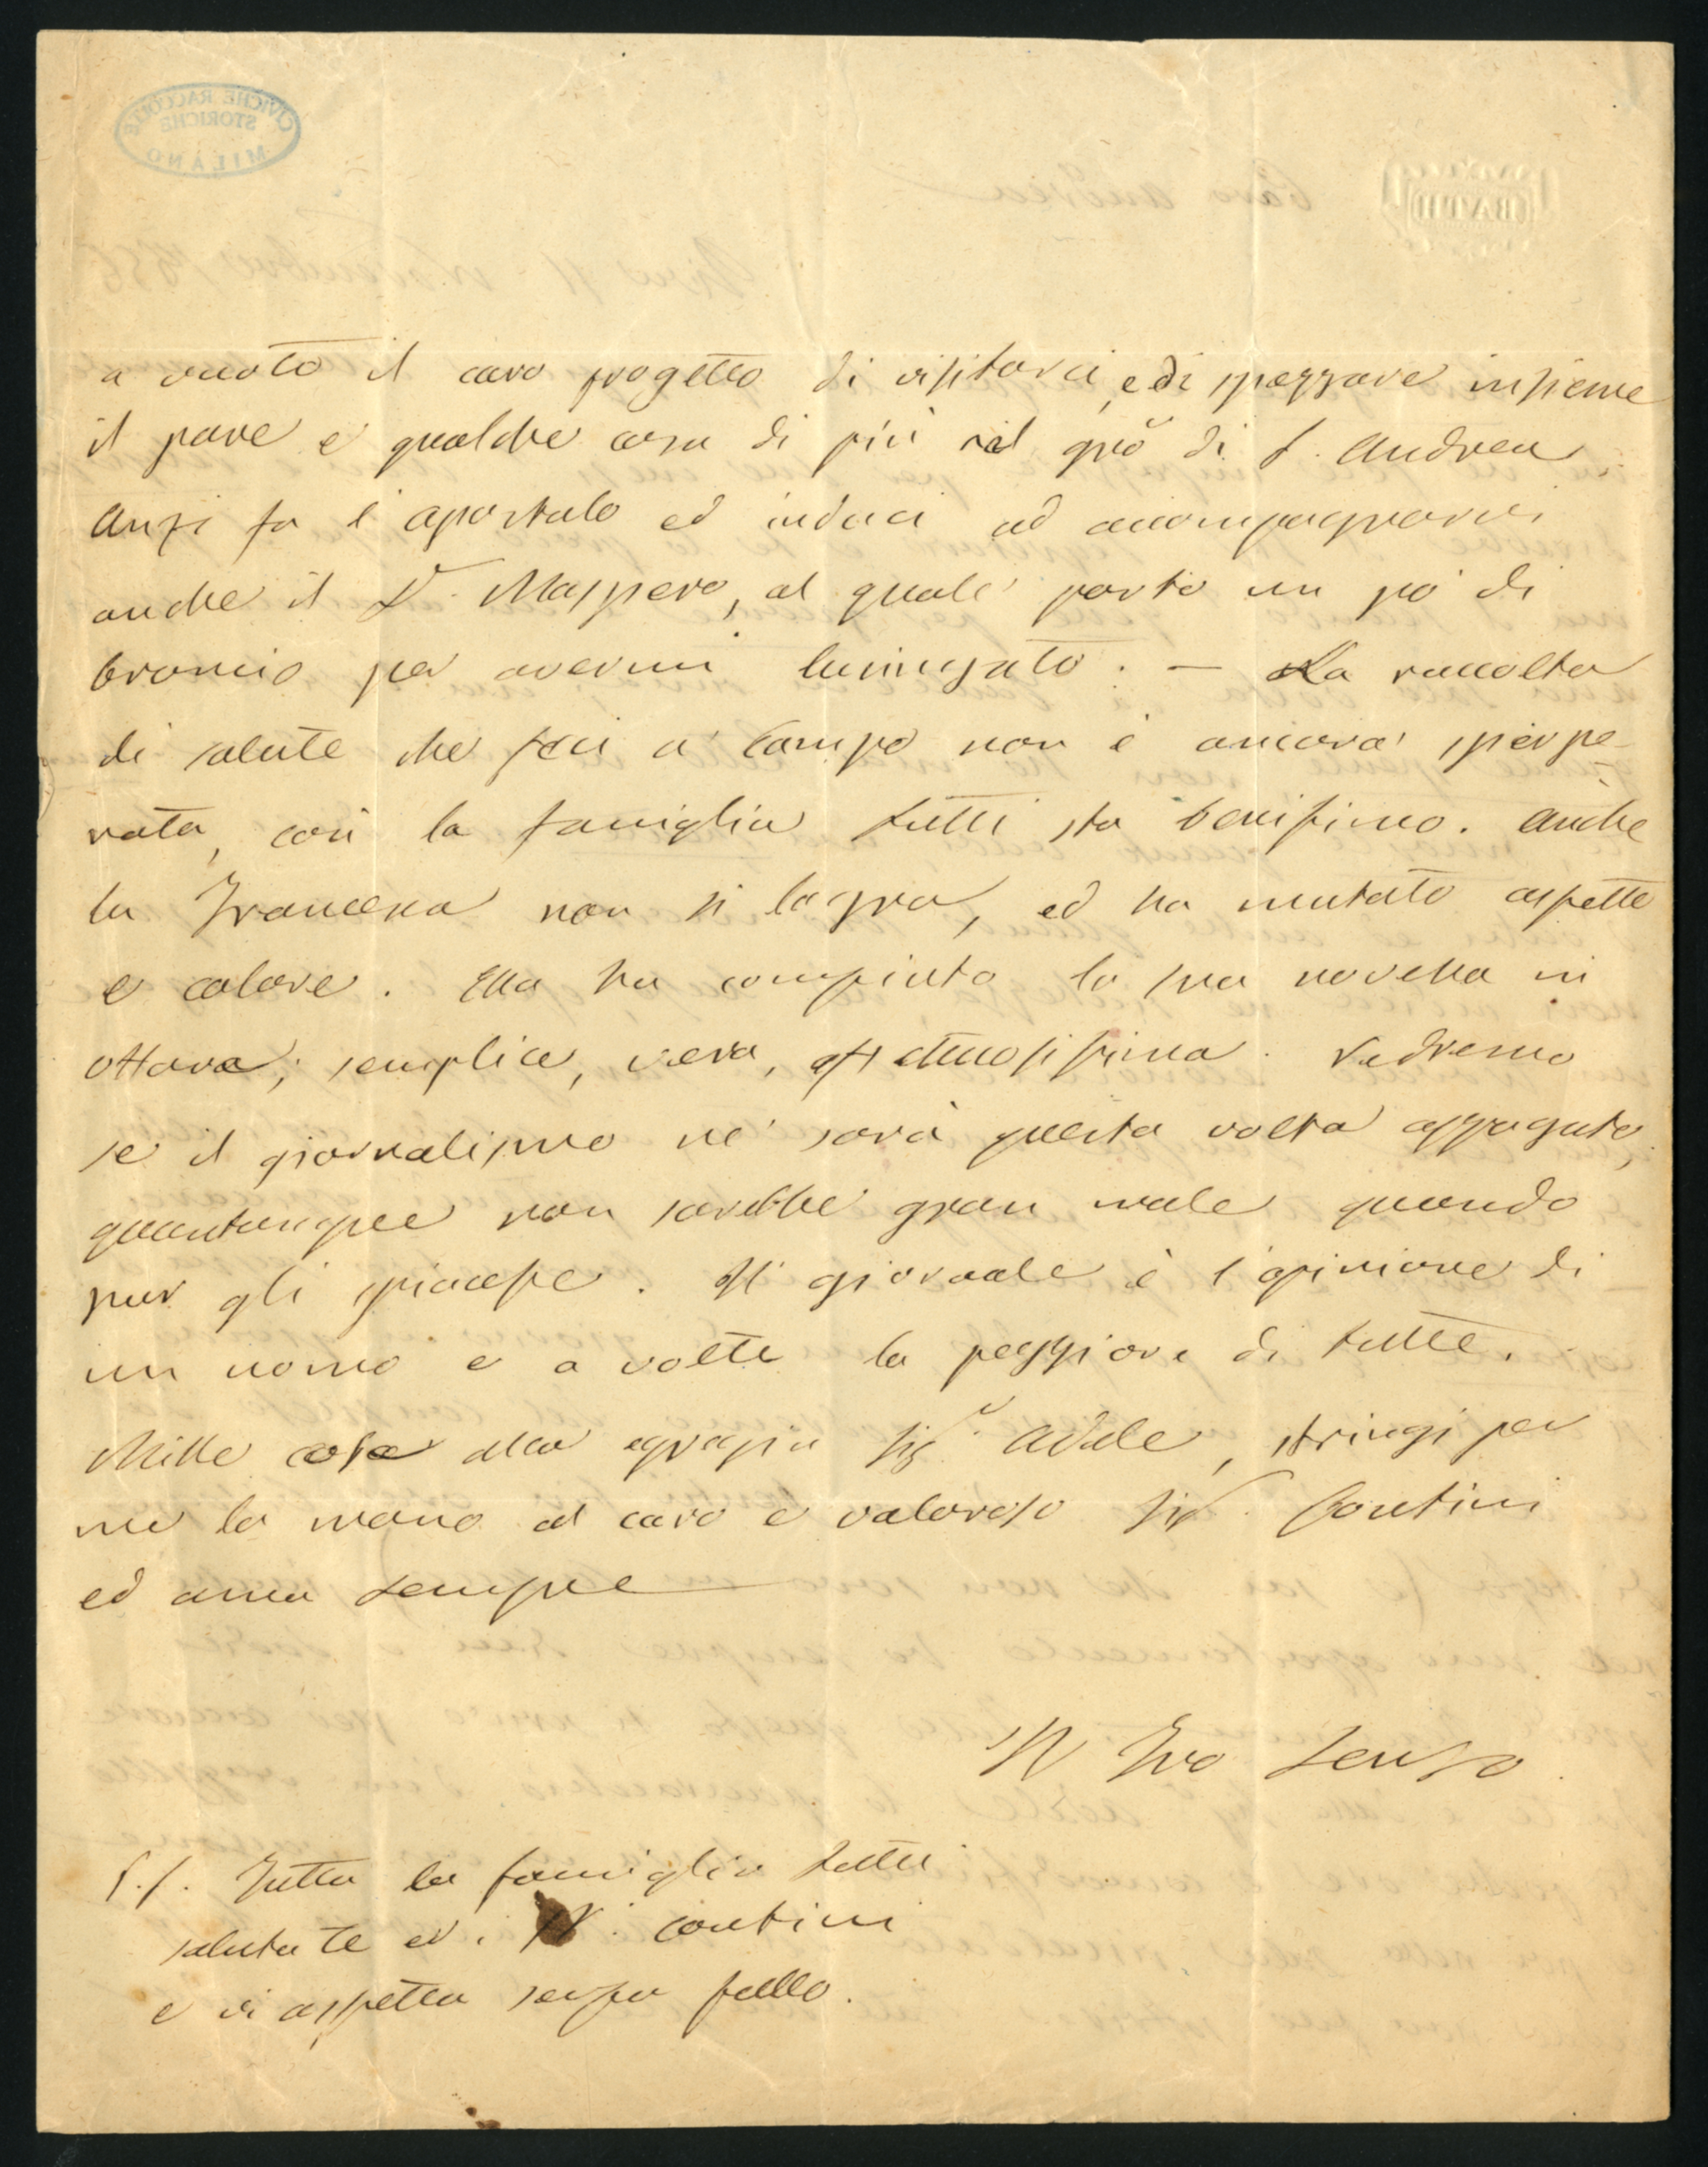 a vuoto il caro progetto di visitarci, e di spezzare insieme
il pane e qualche cosa di più nel gno di S. Andrea.
Anzi fa l'apostolo ed induci ad accompagnarvi
anche il Dr. Maspero, al quale porto un pò di
broncio per avermi lusingato. — La raccolta
di salute che feci a Campo non è ancora sperpe-
rata, così la famiglia tutti sta benissimo. Anche
la Francesca non si lagna, ed ha mutato aspetto
e colore. Ella ha compiuto la sua novella in
ottava; semplice, vera, affettuosissima. Vedremo
se il giornalismo ne sarà questa volta appagato,
quantunque non sarebbe gran male quando
pur gli spiacesse. Il giornale è l'opinione di
un uomo e a volte la peggiore di tutte.
Mille cose alla egregia Sigr. Adele, stringi per
me la mano al caro e valoroso Sigr. Contini
ed ama sempre
Il Tuo Lenzo
P.S. Tutta la famiglia tutti
saluta te ed i Contini
e vi aspetta senza fallo.
CIVICHE RACCOLTE
STORICHE
MILANO
BATH